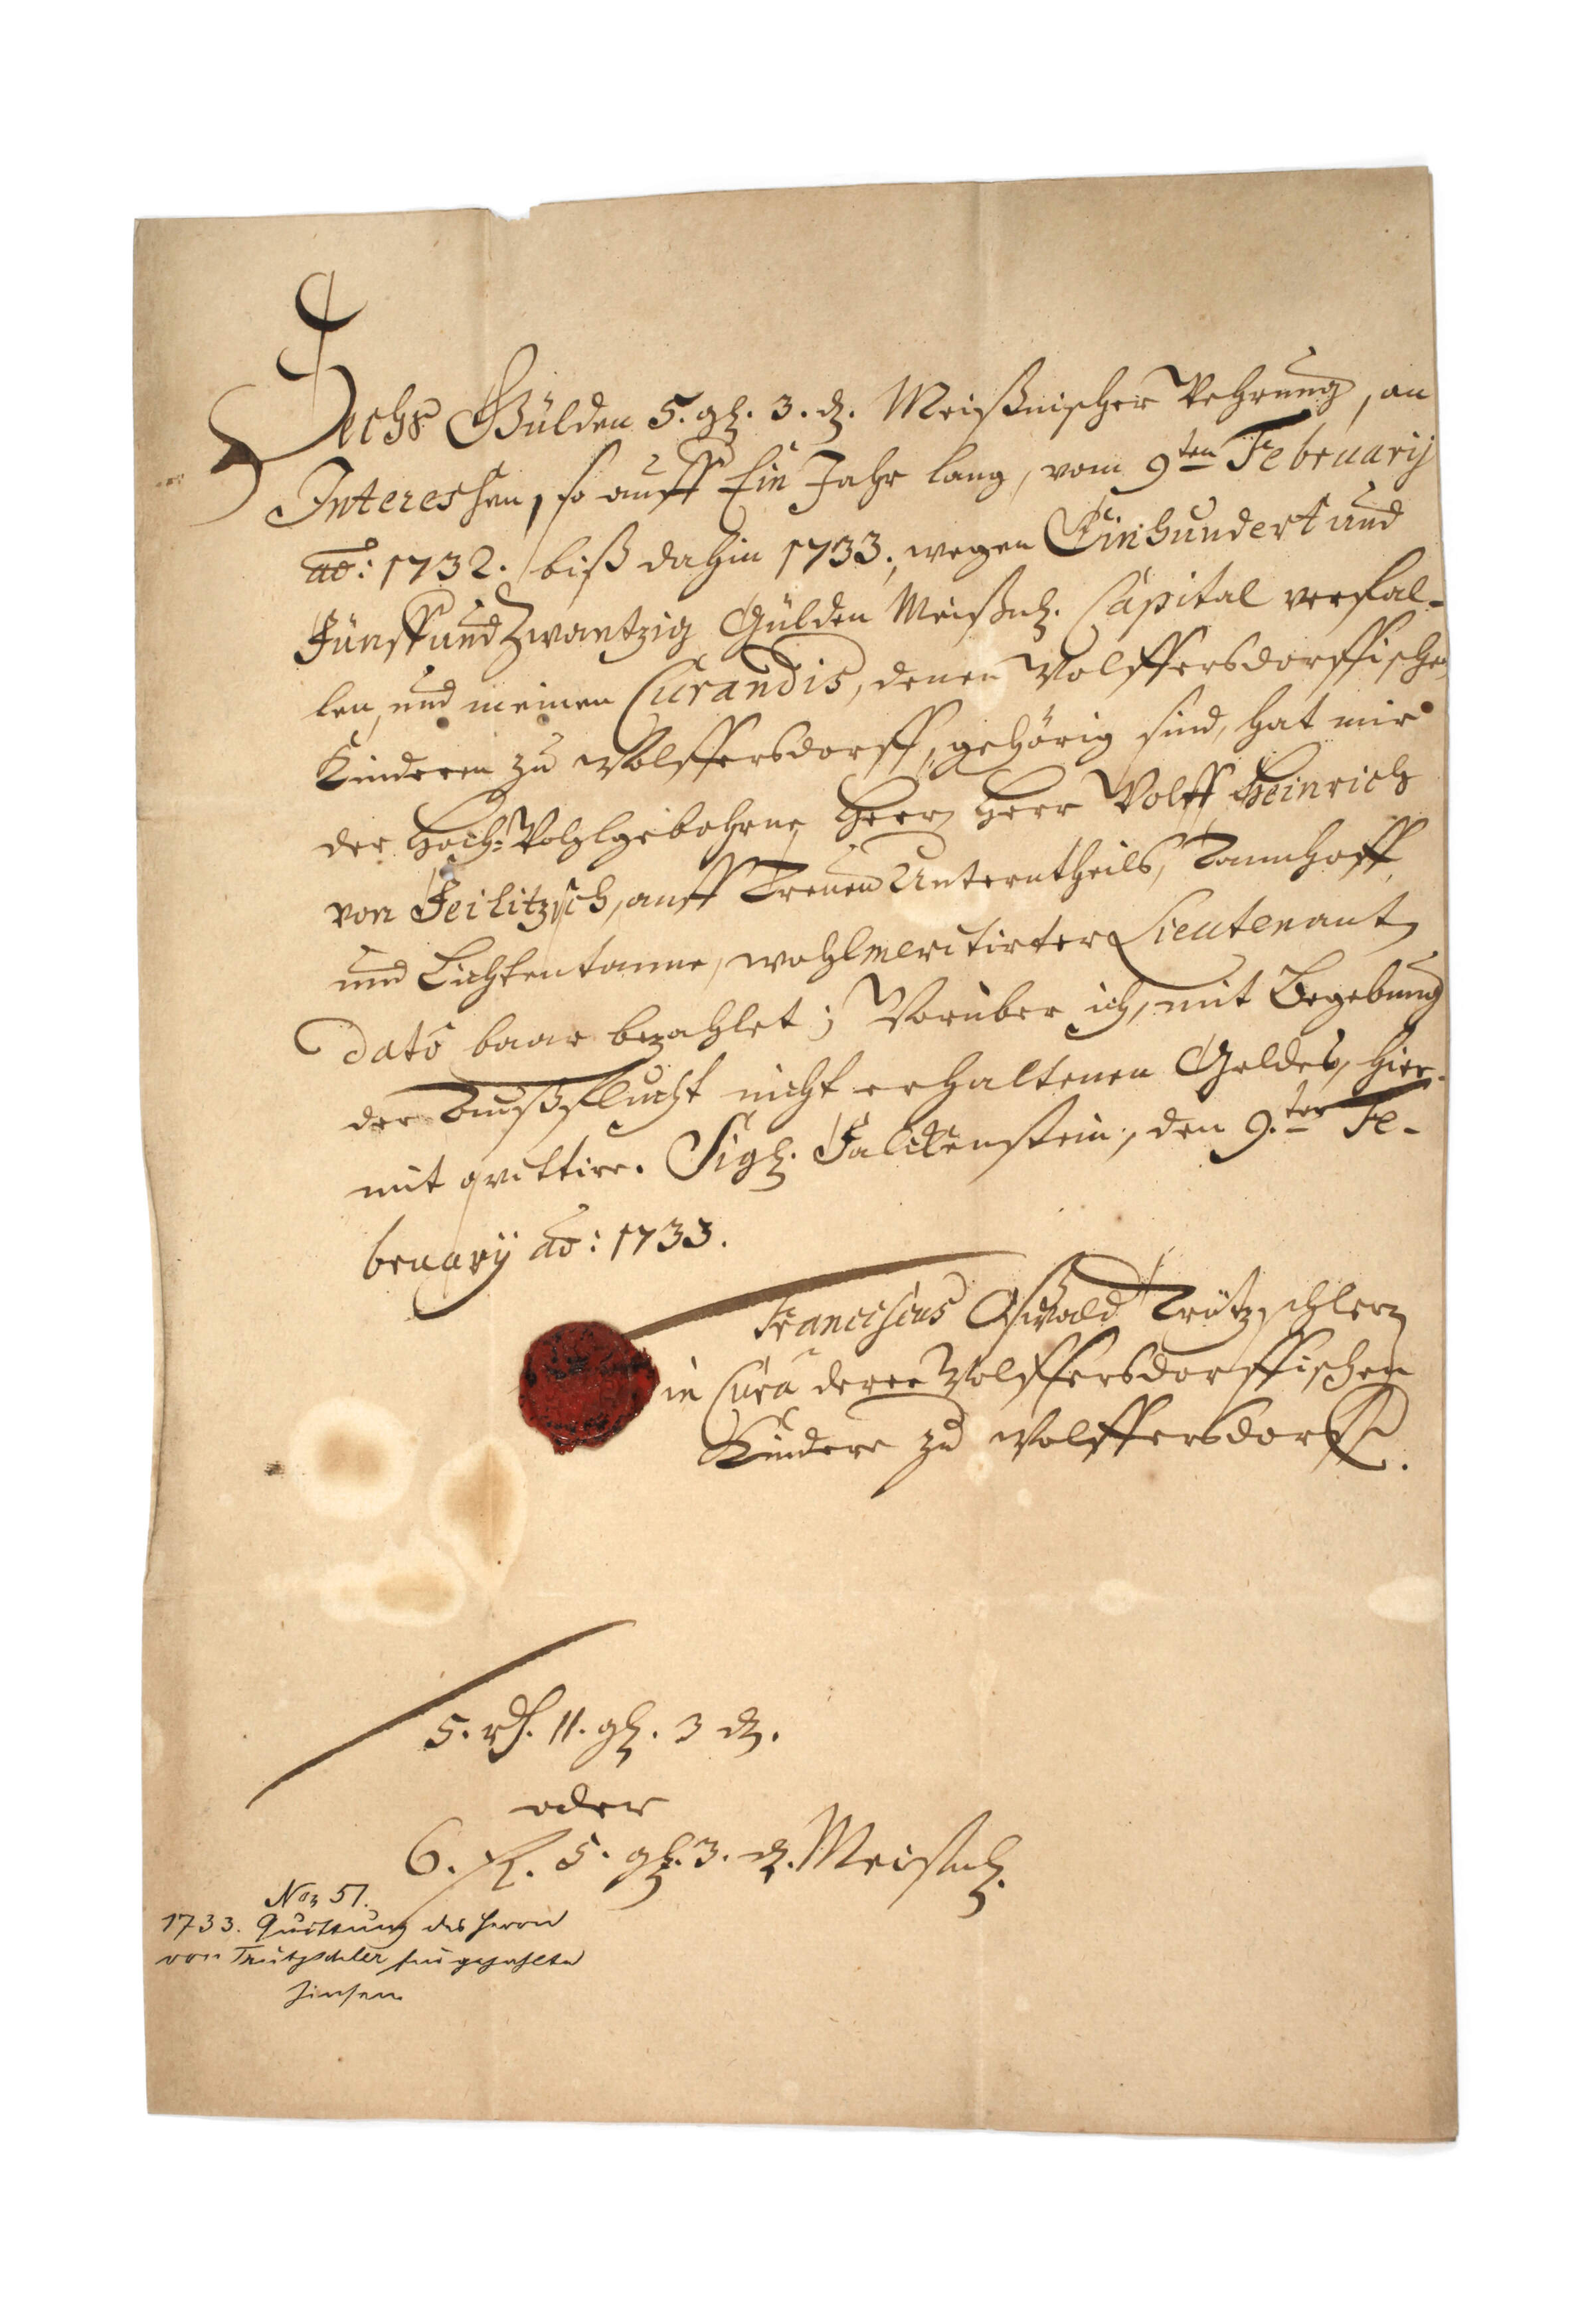 Sechs Gülden 5. gl. 3. d. Meißnischer Wehrung, an
Interessen, so auff Ein Jahr lang, vom 9ten Februarij
ao: 1732. biß dahin 1733., wegen Einhundert und
Fünff und Zwantzig Gülden Meißnl. Capital verfal-
len, und meinen Curandis, denen Wolffersdorffischen
Kindern zu Wolffersdorff, gehörig sind, hat mir
der Hoch-Wohlgebohrne Herr, Herr Wolff Heinrich
von Feilitzsch, auff Treuen Unterntheils, Tannhoff,
und Lichtentanne, wohlmeritirter Lieutenant,
dato baar bezahlet; Worüber ich, mit Begebung
der Außflucht nicht erhaltenen Geldes, hier-
mit qvittire. Sigl. Falckenstein, den 9.ten Fe-
bruarij ao: 1733.
Franciscus Oßwald Trützschler
in Cura derer Wolffersdorffischen
Kindere zu Wolffersdorff.
5. rth. 11. gl. 3 d.
oder
6. fl. 5. gl. 3. d. Meißnl.
Nro 51.
1733. Quittung des Herrn
von Trützschler für gezahlte
Zinsen